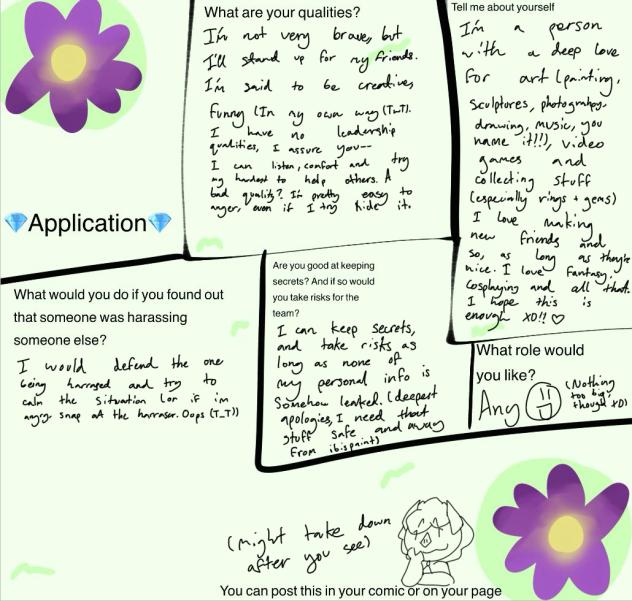 What are your qualities?
I'm not very brave, but
I'll stand up for my friends.
I'm said to be creative,
funny (In my own way (T_T).
I have no leadership
qualities, I assure you--
I can listen, comfort and try
my hardest to help others. A
bad quality? I'm pretty easy to
anger, even if I try hide it.
Tell me about yourself
I'm a person
with a deep love
for art (painting,
sculptures, photography,
drawing, music, you
name it!!!), video
games and
collecting stuff
(especially rings + gems)
I love making
new friends and
so, as long as they're
nice. I love fantasy,
cosplaying and all that.
I hope this is
enough XD!! ♡
💎Application💎
What would you do if you found out
that someone was harassing
someone else?
I would defend the one
being harrased and try to
calm the situation (or if im
angry snap at the harraser. Oops (T_T))
Are you good at keeping
secrets? And if so would
you take risks for the
team?
I can keep secrets,
and take risks as
long as none of
my personal info is
somehow leaked. (deepest
apologies, I need that
stuff safe and away
from ibispaint)
What role would
you like?
Any (Nothing
too big
though XD)
(might take down
after you see)
You can post this in your comic or on your page